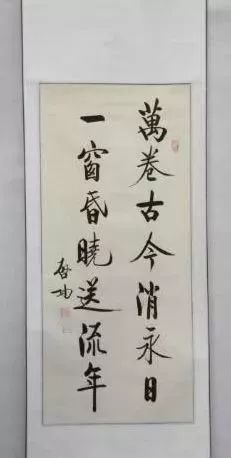 萬卷古今消永日
一窗昏曉送流年
啟功